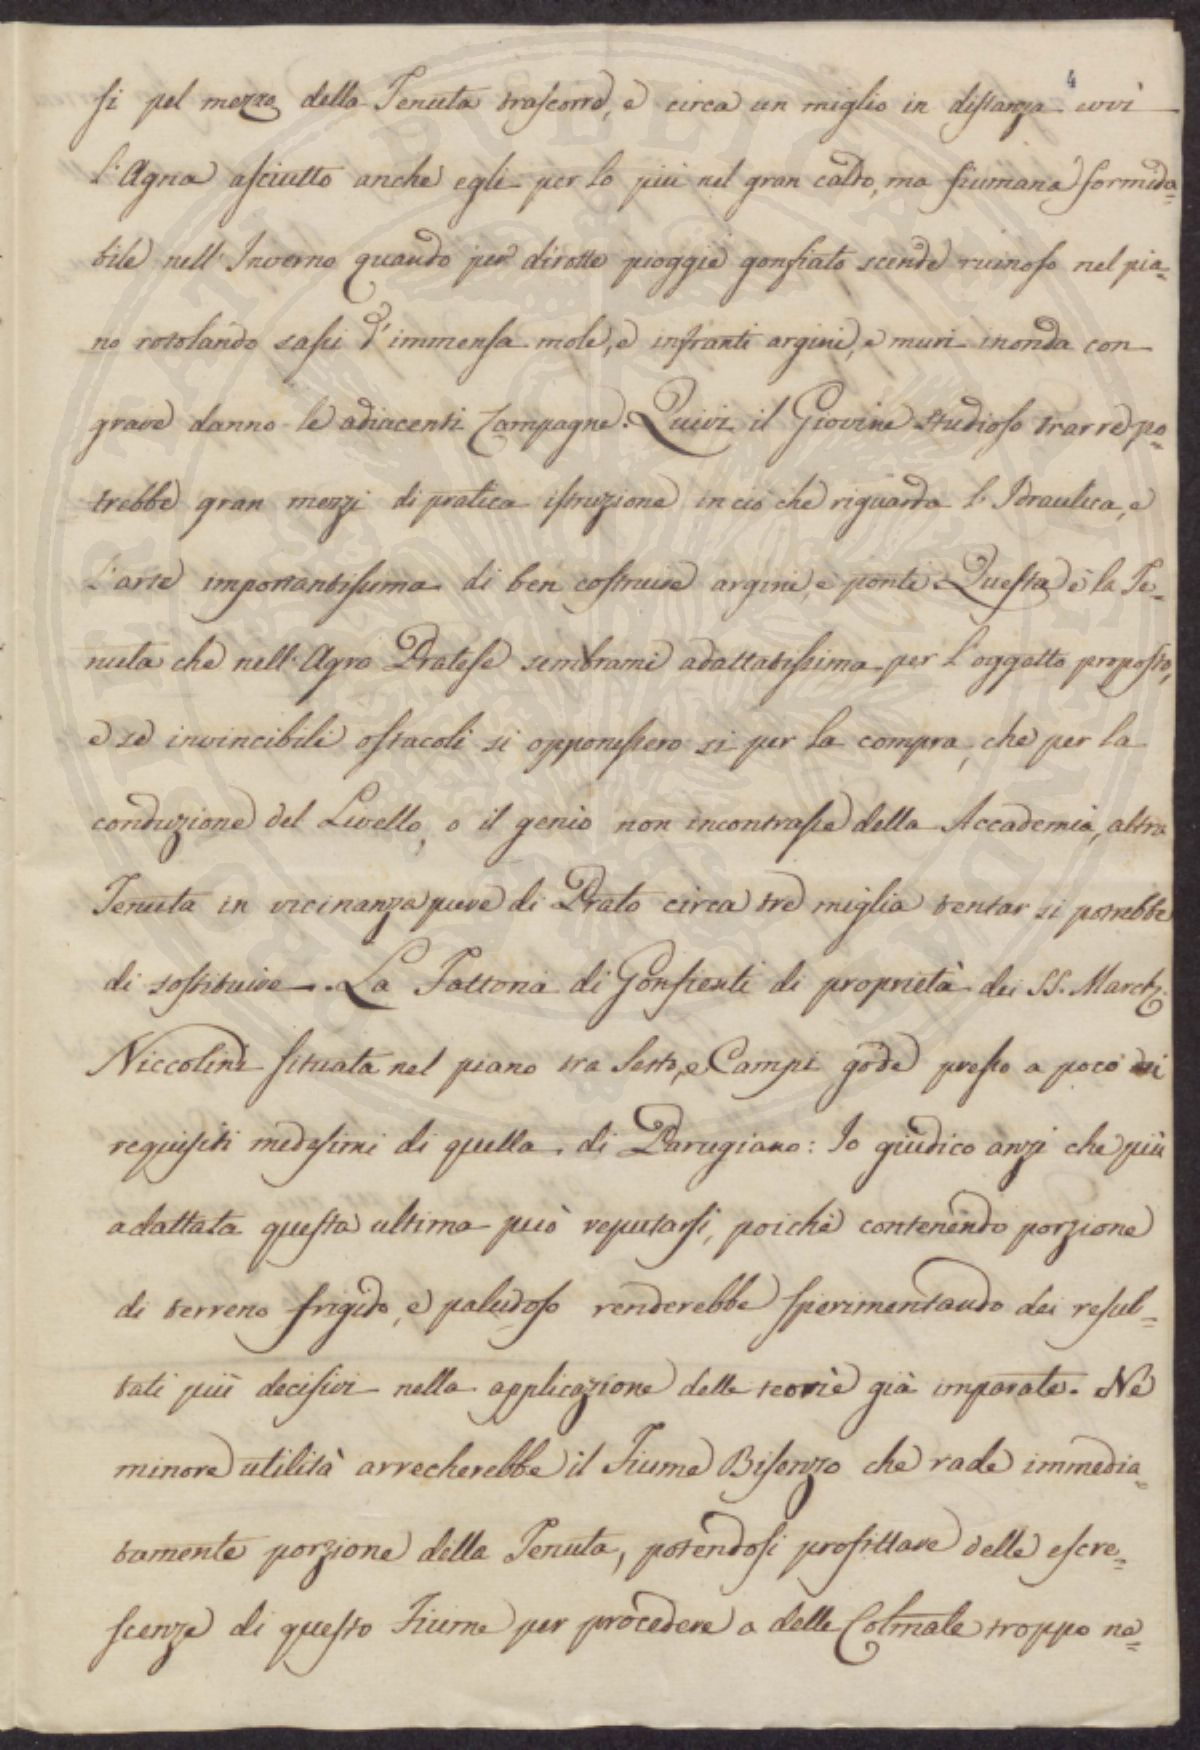 4
si pel mezzo della Tenuta trascorre, e circa un miglio in distanza evvi
l'Agna asciutto anche egli per lo più nel gran caldo, ma fiumana formida=
bile nell'Inverno quando per dirotte pioggie gonfiato scende ruinoso nel pia=
no rotolando sassi d'immensa mole, e infranti argini, e muri inonda con
grave danno le adiacenti Campagne. Quivi il Giovine studioso trarre po=
trebbe gran mezzi di pratica istruzione in ciò che riguarda l'Idraulica, e
l'arte importantissima di ben costruire argini, e ponti. Questa è la Te=
nuta che nell'Agro Pratese sembrami adattatissima per l'oggetto proposto,
e se invincibili ostacoli si opponessero si per la compra, che per la
conduzione del Livello, o il genio non incontrasse della Accademia, altra
Tenuta in vicinanza pure di Prato circa tre miglia tentar si potrebbe
di sostituire. La Fattoria di Gonfienti di proprietà dei SS. March.
Niccolini situata nel piano tra Sesto, e Campi gode presso a poco dei
requisiti medesimi di quella di Parugiano: Io giudico anzi che più
adattata questa ultima può reputarsi, poichè contenendo porzione
di terreno frigido, e paludoso renderebbe sperimentando dei resul=
tati più decisivi nella applicazione delle teorie già imparate. Nè
minore utilità arrecherebbe il Fiume Bisenzo che rade immedia=
tamente porzione della Tenuta, potendosi profittare delle escre=
scenze di questo Fiume per procedere a delle Colmate troppo ne=